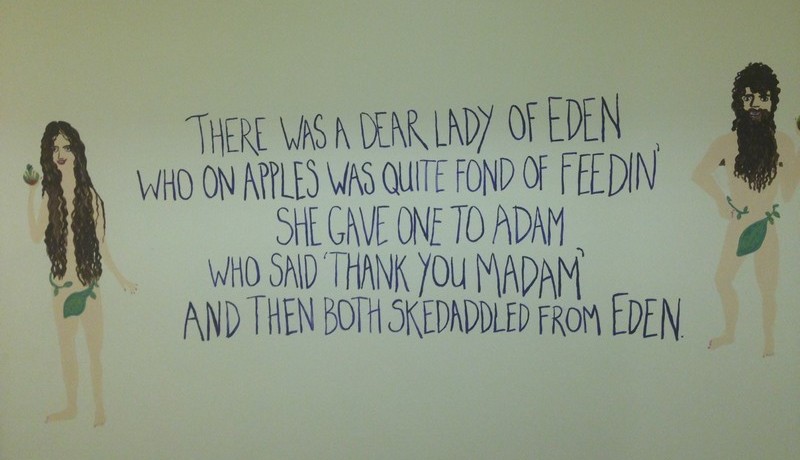 THERE WAS A DEAR LADY OF EDEN
WHO ON APPLES WAS QUITE FOND OF FEEDIN'
SHE GAVE ONE TO ADAM
WHO SAID 'THANK YOU MADAM'
AND THEN BOTH SKEDADDLED FROM EDEN.